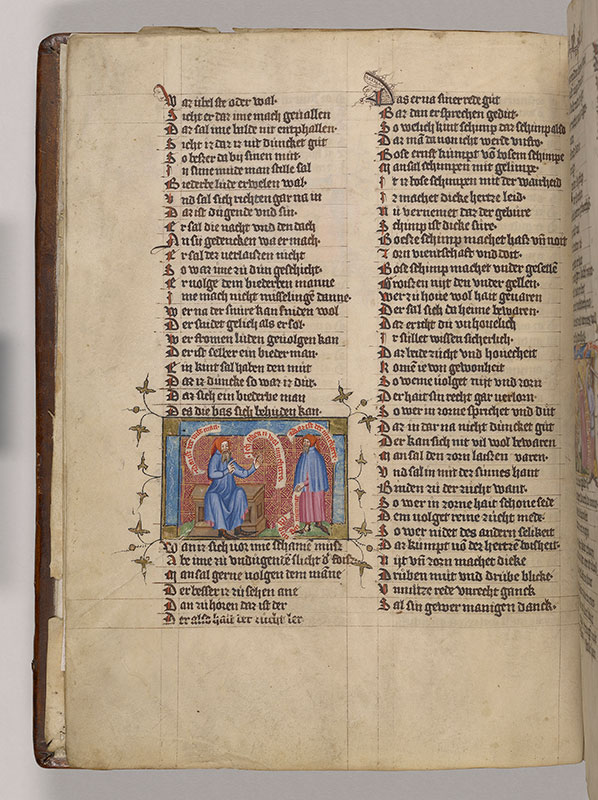 War übel ste oder wal·
Sicht er dar ime mach geuallen
Dar sal ime bilde nit entphallen·
Sicht iz dar iz nit düncket güt
So besser da bi sinen müt·
In sime müde man stille sal
Biederbe lüde erwelen wal·
Vnd sal sich richten gar na in
Dar ist dügende vnd sin·
Er sal die nacht vnd den dach
An sie gedencken wa er mach·
Er sal der verlaissen nicht
So war ime zü dün geschicht·
Er volge dem biederben manne
Ime mach nicht misselingen danne·
Wer na der snüre kan sniden wol
Der snidet gelich als er sol·
Wer fromen luden geuolgen kan
Der ist selber ein bieder man·
Ein kint sal haben den müt
Dar iz düncke so war iz düt·
Dar sich ein biderbe man
Des die bas sich behuden kan·
Wan iz sich vor ime schamen müsz
Man sal gerne volgen dem manne
Der besser iz zü sehen ane
Dan zü horen dar ist der
Der also hait der zucht ler
Das er na siner rede güt
Bar dan er sprechen gedüt·
So welich kint schimp dar schimp also
Dar man da von icht werde vnfro·
Bose ernst kümpt vō bosem schimpe
Man sal schimpen mit gelimpe·
It iz bose schimpen mit der warheid
Iz machet dicke hertze leid·
Nü vernemet dar der gebüre
Schimp ist dicke süre·
Boese schimp machet hass vn̄ noit
Zorn vientschaft vnd doit·
Bose schimp machet vnder gesellē
Groissen nijt den vnder gellen·
Wer zu houe wol hait geuaren
Der sal sich da heime bewaren·
Dar er icht dü vn houelich
Ir sullet wissen sicherlich·
Dar beide zücht vnd houecheit
Komē ie von gewonheit
So weme volget nijt vnd zorn
Der hait sin recht gar verlorn·
So wer in zorne sprichet vnd düt
Dar in dar na nicht düncket güt
Der kan sich nit vil wol bewaren
Man sal den zorn laissen varen·
Vnd sal in mit der sinnes hant
Binden zü der zücht want·
So wer in zorne hait schone sede
Dem volget reine zücht mede·
So wer nidet des andern selikeit
Dar kümpt vō des hertzē bosheit·
Nijt vn̄ zorn machet dicke
Drüben müt vnd drübe blicke·
Vnnütze rede vnrecht ganck
Sal sin gewer manigen danck·